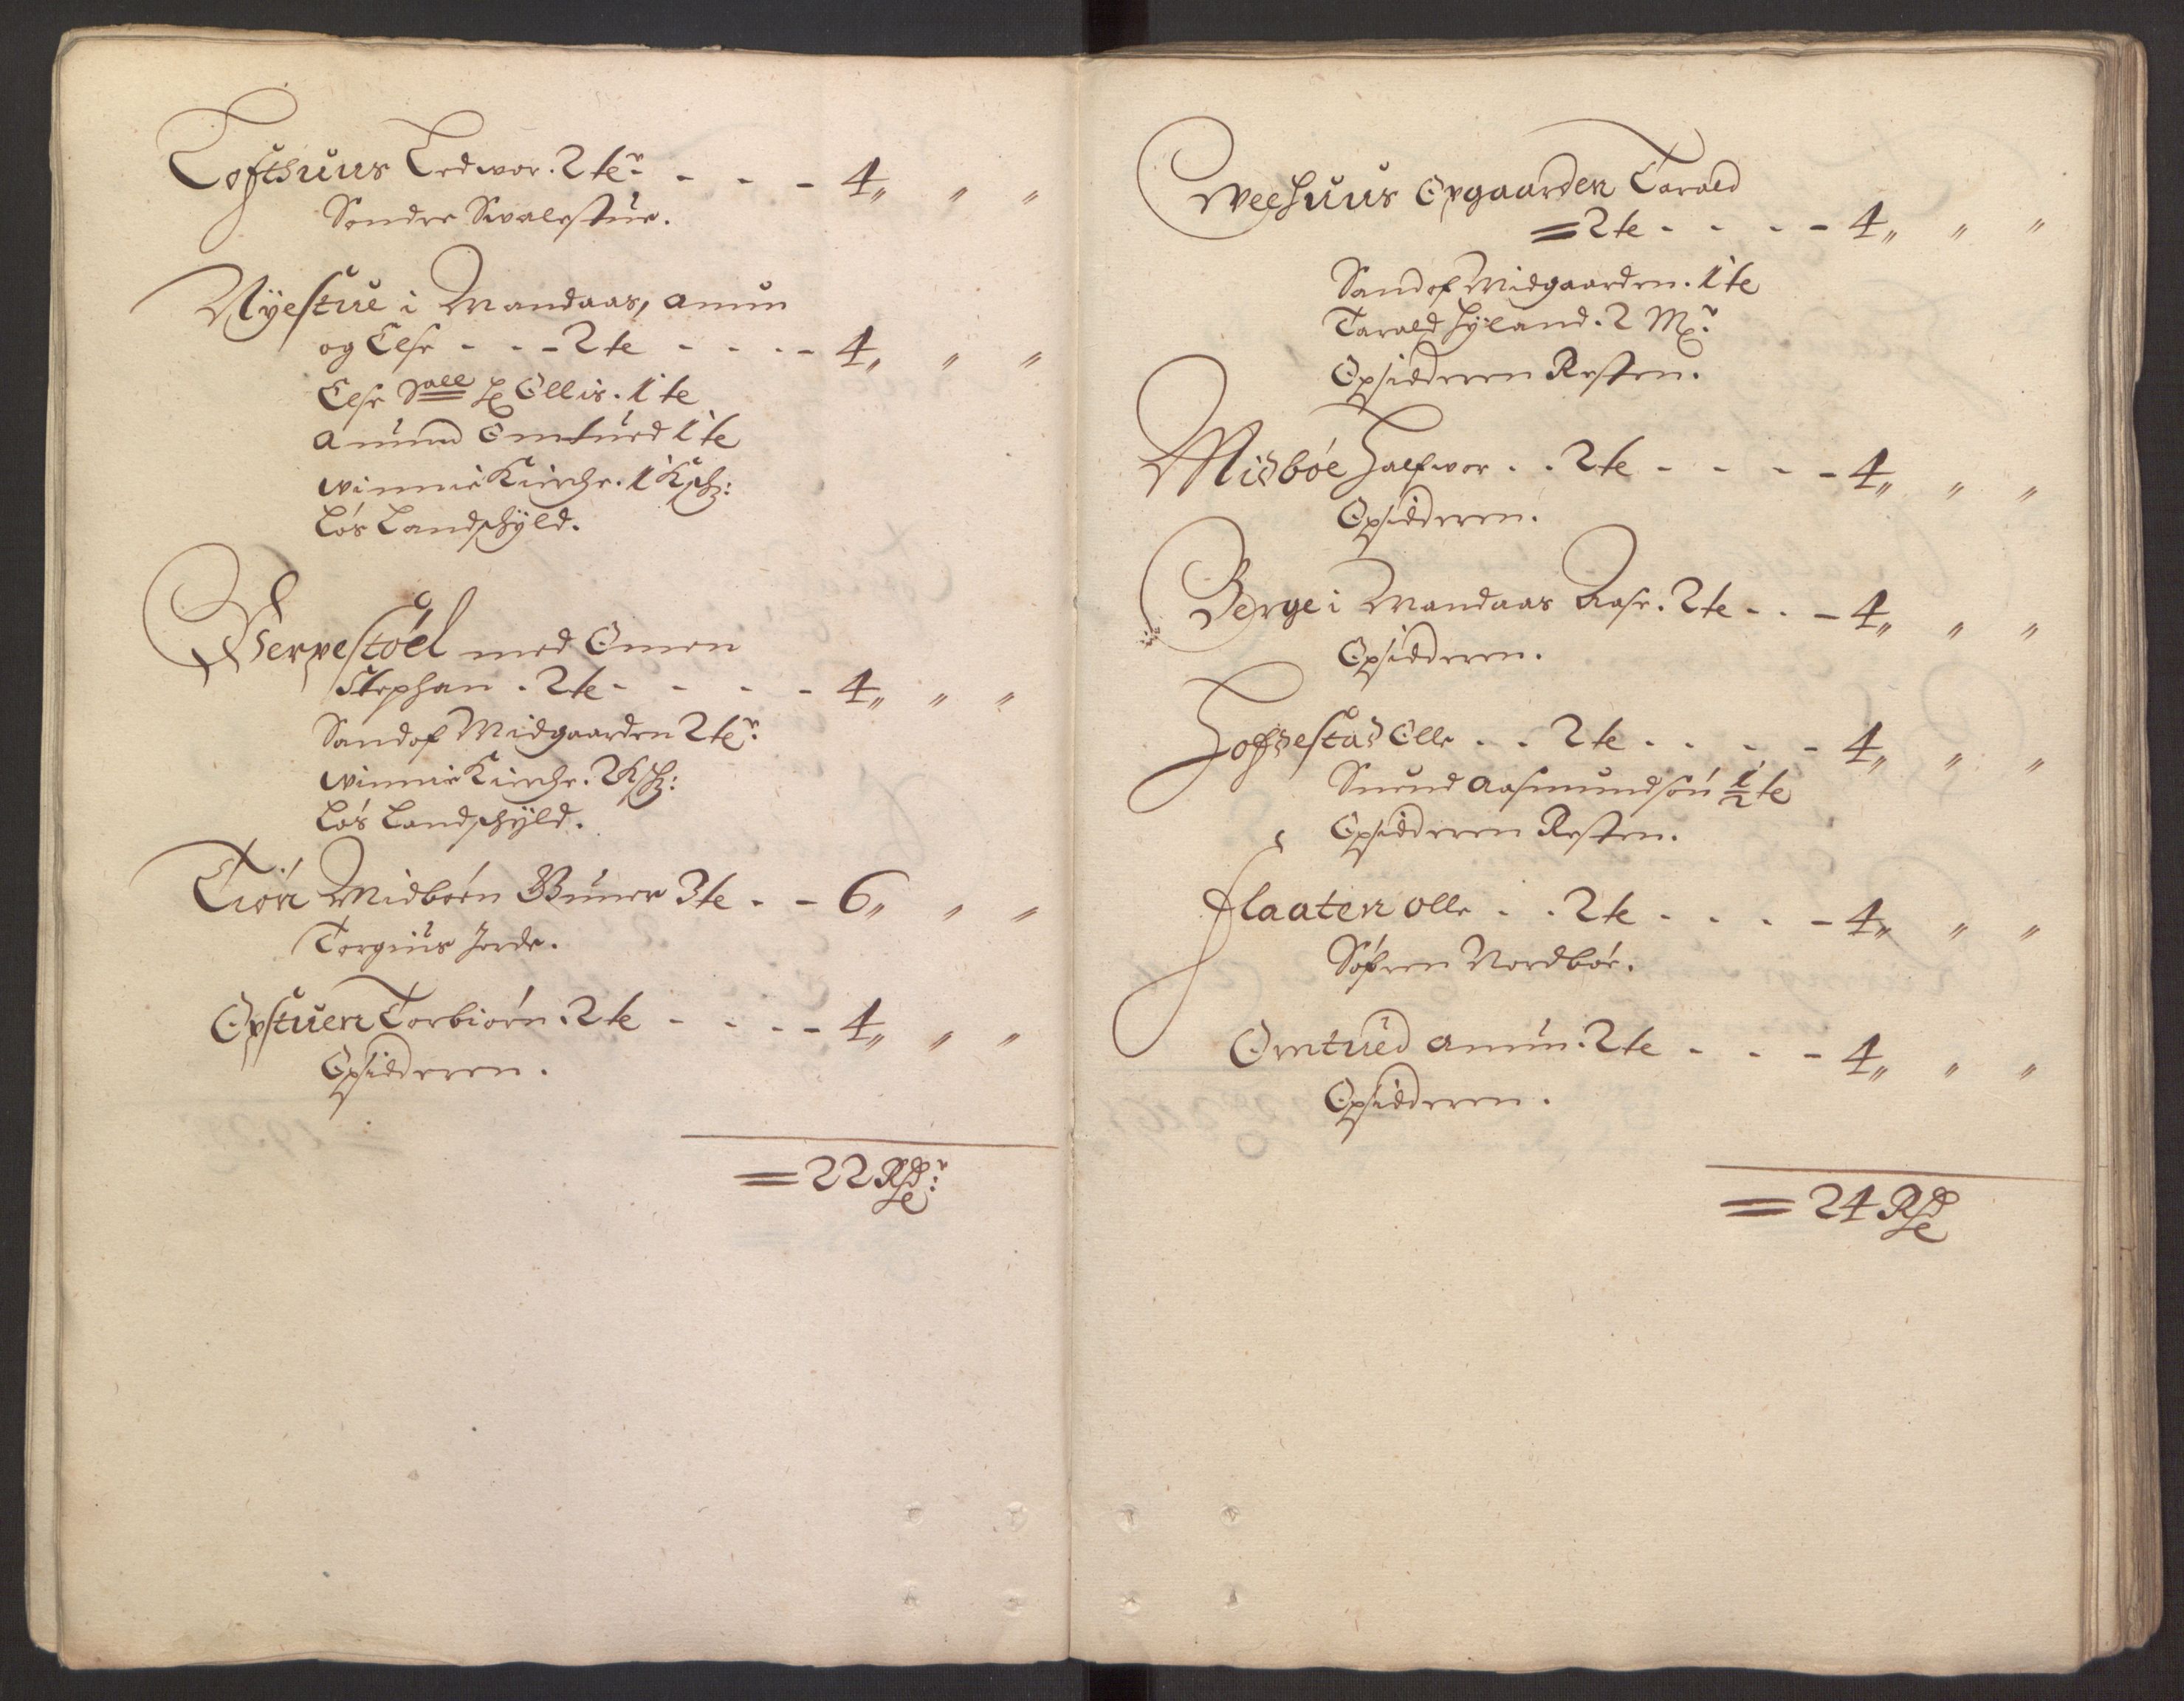 Lofthuus Ledwor. 2 ter - - - 4 " " "
Søndre Swalestue.
Nÿestue i Mandaas, Anun
og Else - - - 2 te - - - - 4 " " "
Else Olles. 1 te
Anund Omtued 1 te
Winnie Kirche. 1 Ksk:
Løs Landschÿld.
Verpestöel med Omen
Stephan . 2 te - - - - 4 " " "
Sandof Midgaarden 2 ter:
Winnie Kirche. 2 Ksk:
Løs Landschÿld.
Tiön Midböen Guner 3 te - - 6 " " "
Torgius Jorde.
Opstuen Torbiörn. 2 te - - - - 4 " " "
Opsidderen.
= 22 Rdr:
Weehuus Opgaarden Tarald
= 2 te - - - - 4 " " "
Sandof Midgaarden. 1 te
Tarald Hÿland. 2 Mr:
Opsidderen Resten.
Midböe Halfwor . . 2 te - - - - 4 " " "
Opsidderen.
Berge i Mandaas Aase. 2 te - . - 4 " " "
Opsidderen.
Hofdestad Olle . . 2 te . . . - 4 " " "
Suend Aasmundsön 1/2 te
Opsidderen Resten.
Flaaten Olle . . 2 te . . . - 4 " " "
Søfren Nordböe.
Omtued Anun. 2 te - - - 4 " " "
Opsidderen.
= 24 Rd